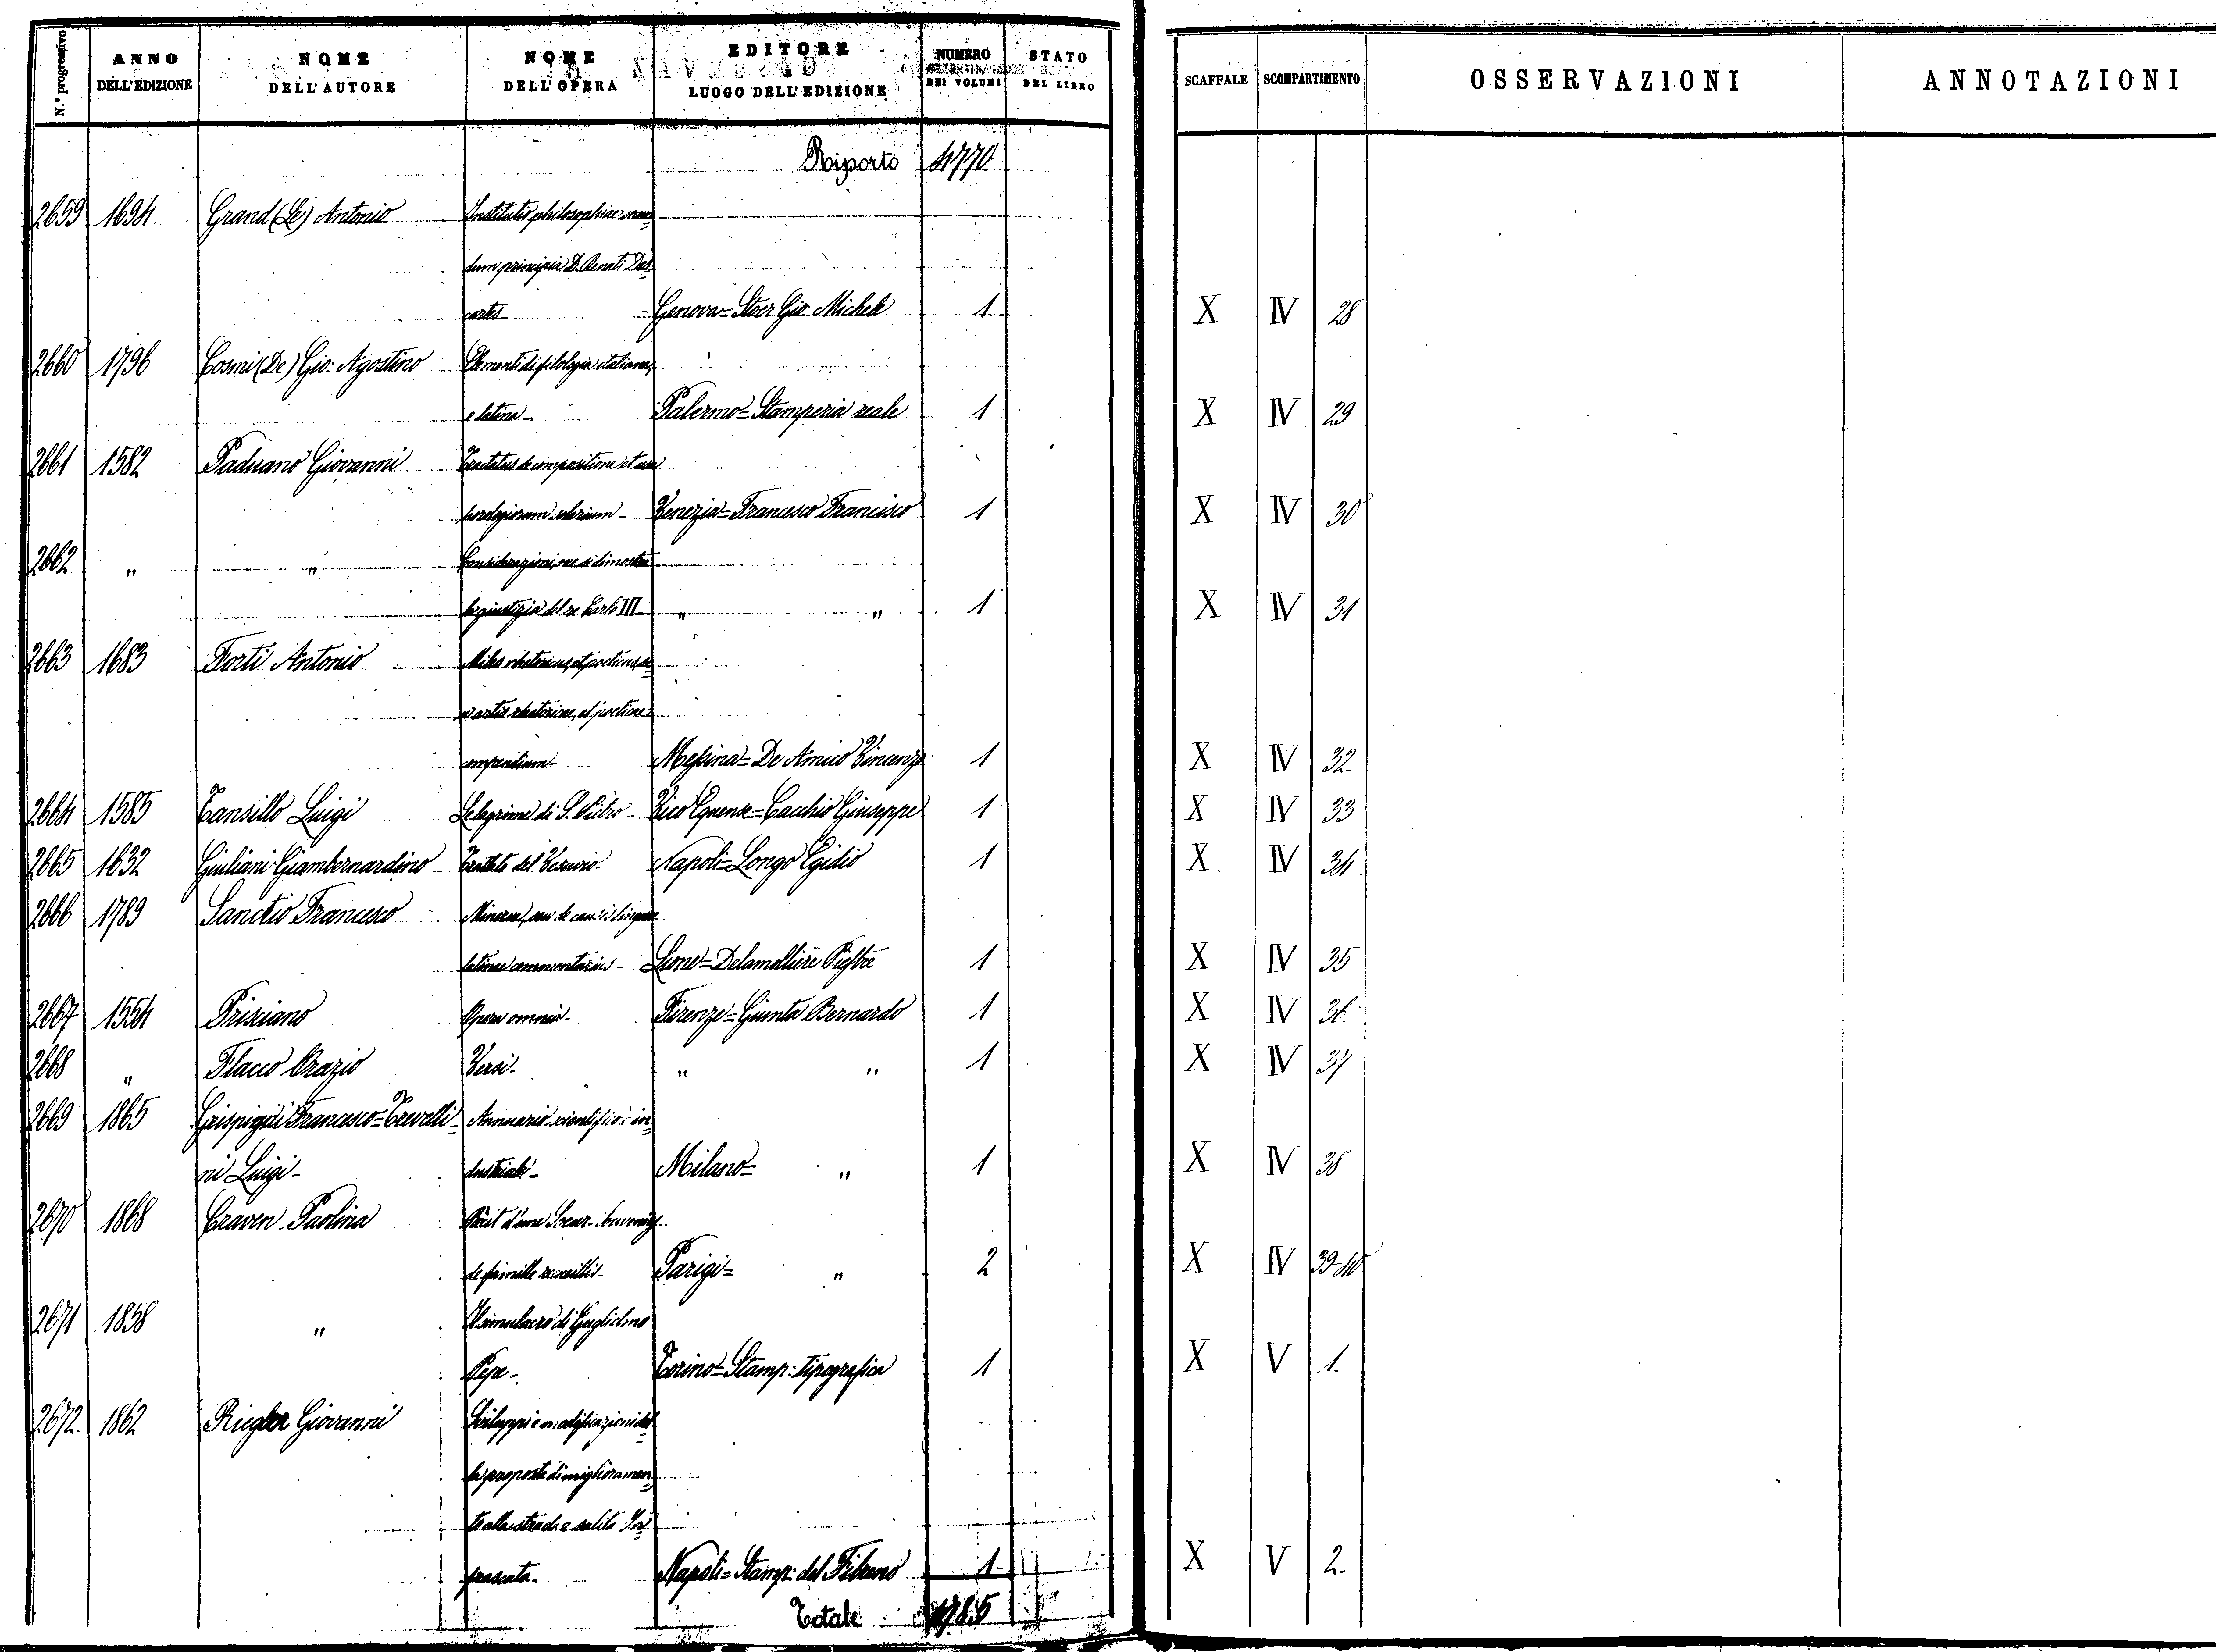 N.º progressivo | ANNO DELL'EDIZIONE | NOME DELL'AUTORE | NOME DELL'OPERA | EDITORE LUOGO DELL'EDIZIONE | NUMERO DEI VOLUMI | STATO DEL LIBRO | SCAFFALE | SCOMPARTIMENTO | OSSERVAZIONI | ANNOTAZIONI
Riporto 4770
2659 1694 Grand (Le) Antonio Institutio philosophiae secun=
dum principia D. Renati Des=
cartes Genova=Stoer Gio. Michele 1 X IV 28
2660 1796 Cosmi (De) Gio: Agostino Elementi di filologia italiana,
e latina - Palermo=Stamperia reale 1 X IV 29
2661 1582 Paduano Giovanni Tractatus de compositione et usu
horologiorum solarium - Venezia=Francesco Francisco 1 X IV 30
2662 " " Considerazioni, ove si dimostra
la giustizia del re Carlo III " " 1 X IV 31
2663 1683 Forti Antonio Miles rhetoricus, et poeticus, se=
u artis rhetoricae, et poeticae
compendium Messina=De Amico Vincenzo 1 X IV 32
2664 1585 Tansillo Luigi Le lagrime di S. Pietro - Vico Equense=Cacchio Giuseppe 1 X IV 33
2665 1632 Giuliani Giambernardino Trattato del Vesuvio - Napoli=Longo Egidio 1 X IV 34
2666 1789 Sanctio Francesco Minerva, seu de causis linguae
latinae commentarius - Lione=Delamollière Piestre 1 X IV 35
2667 1554 Prisciano Opera omnia - Firenze=Giunta Bernardo 1 X IV 36
2668 " Flacco Orazio Versi - " " 1 X IV 37
2669 1865 Grispigni Francesco=Trevelli= Annuario scientifico: in=
ni Luigi - dustriale - Milano= " 1 X IV 38
2670 1868 Craven Paolina Récit d'une Soeur. Souvenirs
de famille recueillis - Parigi= " 2 X IV 39-40
2671 1858 " Il simulacro di Guglielmo
Pepe - Torino=Stamp: tipografica 1 X V 1.
2672. 1862 Riegler Giovanni Sviluppi e modificazioni del=
la proposta di miglioramen=
to alla strada e salita In=
frascata - Napoli=Stamp: del Fibreno 1 X V 2.
Totale 4785